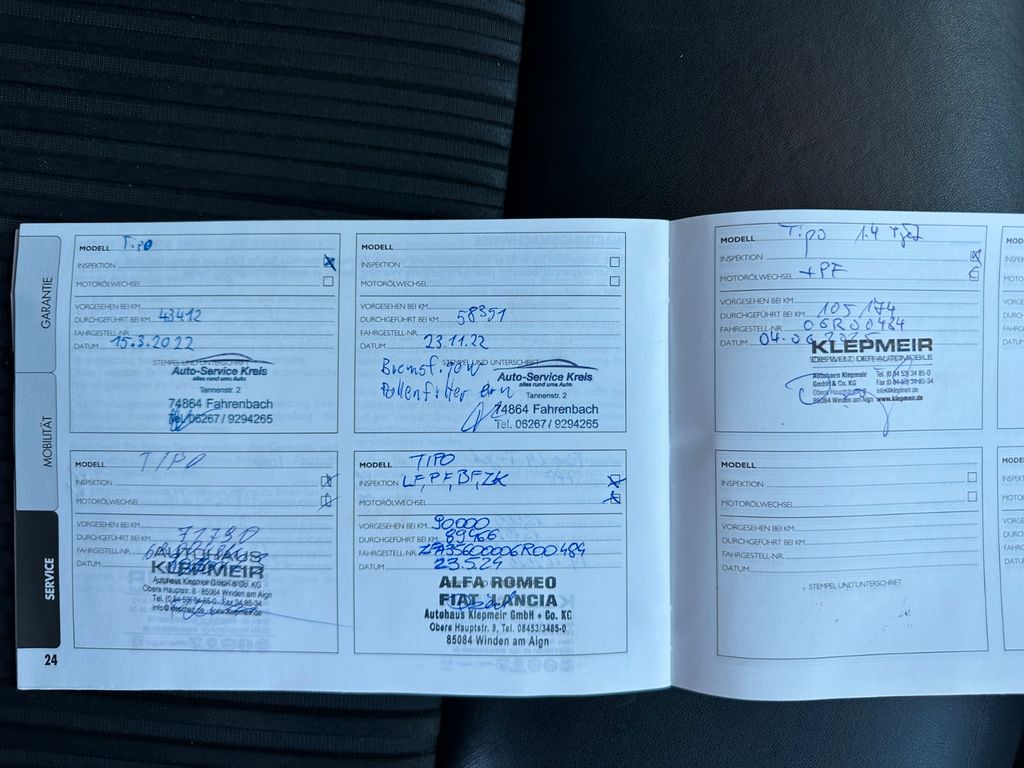 GARANTIE
MOBILITÄT
SERVICE
24
MODELL Tipo
INSPEKTION
MOTORÖLWECHSEL
VORGESEHEN BEI KM
DURCHGEFÜHRT BEI KM 43412
FAHRGESTELL-NR.
DATUM 15.3.2022
STEMPEL UND UNTERSCHRIFT
Auto-Service Kreis
alles rund ums Auto
Tannenstr. 2
74864 Fahrenbach
Tel. 06267 / 9294265
MODELL
INSPEKTION
MOTORÖLWECHSEL
VORGESEHEN BEI KM
DURCHGEFÜHRT BEI KM 58391
FAHRGESTELL-NR.
DATUM 23.11.22
STEMPEL UND UNTERSCHRIFT
Pollenfilter
Auto-Service Kreis
alles rund ums Auto
Tannenstr. 2
74864 Fahrenbach
Tel. 06267 / 9294265
MODELL TIPO
INSPEKTION
MOTORÖLWECHSEL
VORGESEHEN BEI KM
DURCHGEFÜHRT BEI KM 72790
FAHRGESTELL-NR.
DATUM
AUTOHAUS
KLEPMEIR
Autohaus Klepmeir GmbH & Co. KG
Obere Hauptstr. 8 - 85084 Winden am Aign
Tel. (0 84 53) 34 85-0 Fax 34 85-34
info@klepmeir.de www.klepmeir.de
MODELL TIPO
INSPEKTION LF, PF, BF, ZK
MOTORÖLWECHSEL
VORGESEHEN BEI KM 90000
DURCHGEFÜHRT BEI KM 89966
FAHRGESTELL-NR. ZFA35600006R00484
DATUM 23.5.24
ALFA ROMEO
FIAT LANCIA
Autohaus Klepmeir GmbH + Co. KG
Obere Hauptstr. 8, Tel. 08453/3485-0
85084 Winden am Aign
MODELL Tipo 1.4
INSPEKTION
MOTORÖLWECHSEL +PF
VORGESEHEN BEI KM
DURCHGEFÜHRT BEI KM 105174
FAHRGESTELL-NR. 06R00484
DATUM
KLEPMEIR
DIE WELT DER AUTOMOBILE
Autohaus Klepmeir Tel. (0 84 53) 34 85-0
GmbH & Co. KG Fax (0 84 53) 34 85-34
Obere Hauptstr. 8 info@klepmeir.de
85084 Winden am Aign www.klepmeir.de
MODELL
INSPEKTION
MOTORÖLWECHSEL
VORGESEHEN BEI KM
DURCHGEFÜHRT BEI KM
FAHRGESTELL-NR.
DATUM
STEMPEL UND UNTERSCHRIFT